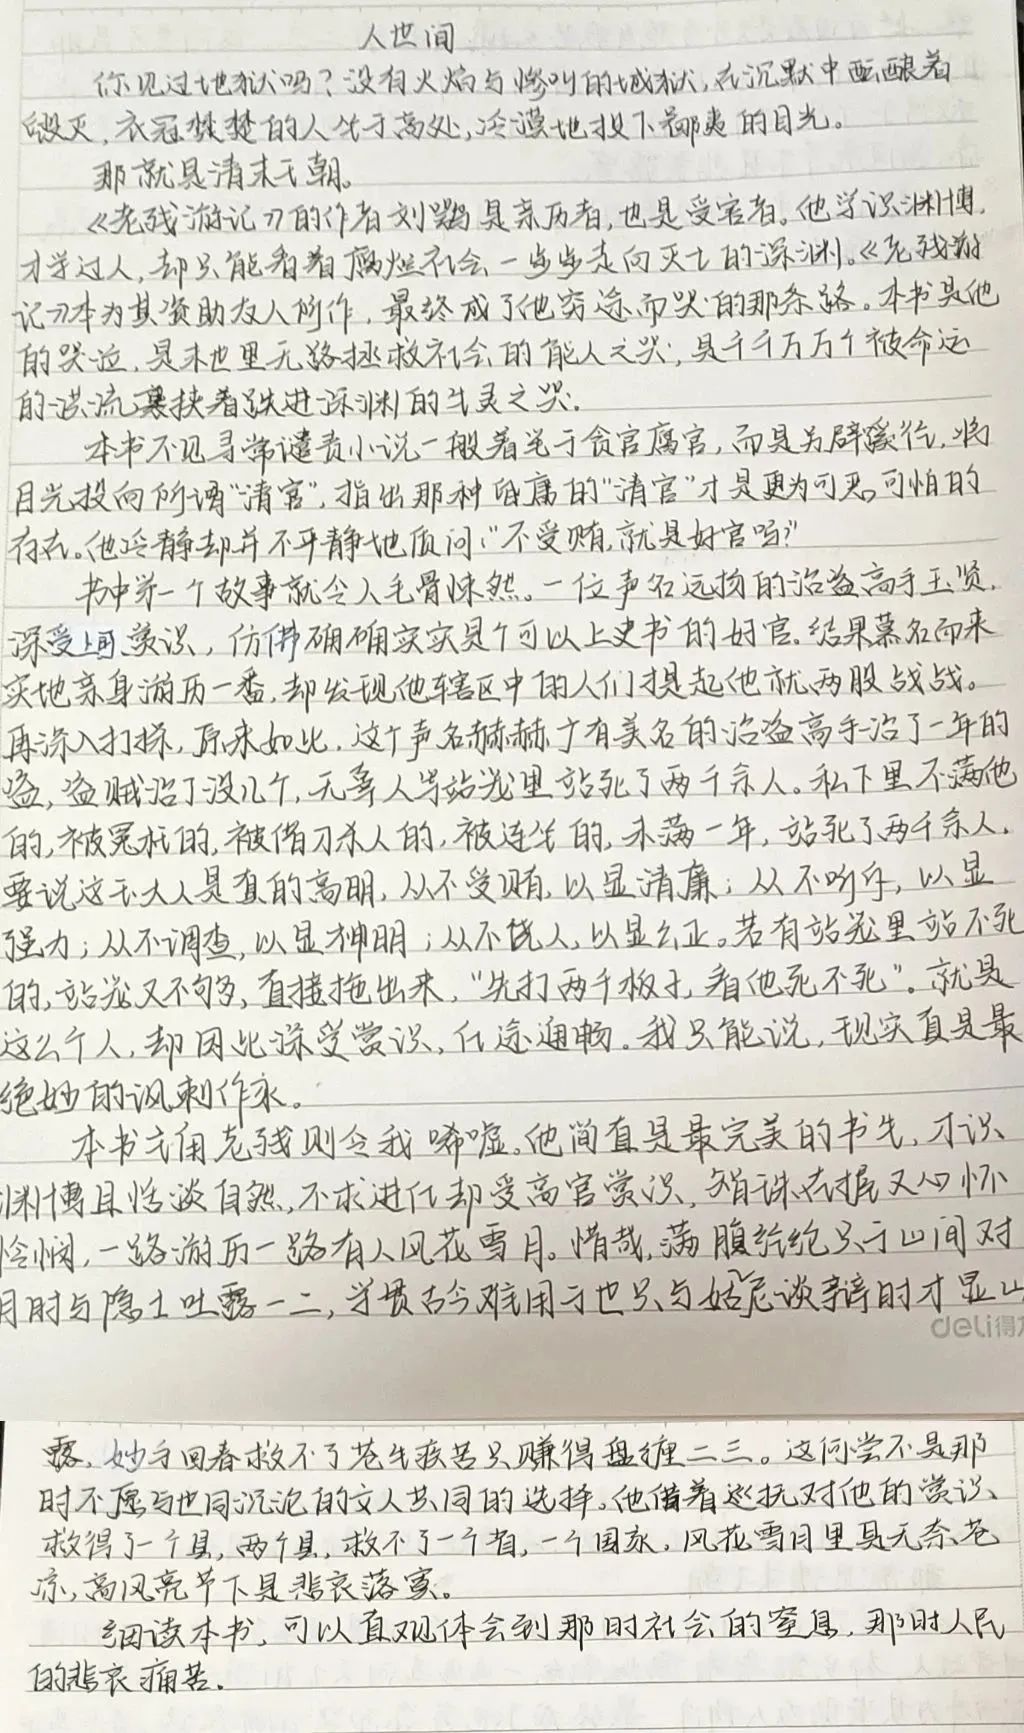 人世间
你见过地狱吗？没有火焰与惨叫的地狱，在沉默中酝酿着
毁灭，衣冠楚楚的人坐于高处，冷漠地投下鄙夷的目光。
那就是清末王朝。
《老残游记》的作者刘鹗是亲历者，也是受害者。他学识渊博，
才学过人，却只能看着腐烂社会一步步走向灭亡的深渊。《老残游
记》本为其资助友人所作，最终成了他穷途而哭的那条路。本书是他
的哭泣，是末世里无路拯救社会的能人之哭，是千千万万个被命运
的洪流裹挟着跌进深渊的生灵之哭。
本书不见寻常谴责小说一般着笔于贪官腐官，而是另辟蹊径，将
目光投向所谓“清官”，指出那种低廉的“清官”才是更为可恶可怕的
存在。他冷静却并不平静地质问：“不受贿，就是好官吗？”
书中第一个故事就令人毛骨悚然。一位声名远扬的治盗高手玉贤，
深受上司赏识，仿佛确确实实是个可以上史书的好官。结果慕名而来
实地亲身游历一番，却发现他辖区中的人们提起他就两股战战。
再深入打探，原来如此，这个声名赫赫广有美名的治盗高手治了一年的
盗，盗贼治了没几个，无辜人等站笼里站死了两千余人。私下里不满他
的，被冤枉的，被借刀杀人的，被连坐的，未满一年，站死了两千余人。
要说这玉大人是真的高明，从不受贿，以显清廉；从不听斥，以显
强力；从不调查，以显神明；从不饶人，以显公正。若有站笼里站不死
的，站笼又不够，直接拖出来，“先打两千板子，看他死不死”。就是
这么个人，却因此深受赏识，仕途通畅。我只能说，现实真是最
绝妙的讽刺作家。
本书主角老残则令我唏嘘。他简直是最完美的书生，才识
渊博且恬淡自然，不求进仕却受高官赏识，智珠在握又心怀
怜悯，一路游历一路有人风花雪月。惜哉，满腹经纶只于山间对
月时与隐士吐露一二，学贯古今难用于世只与姑尼谈辩时才显山
露，妙手回春救不了苍生疾苦只赚得盘缠二三。这何尝不是那
时不愿与世同沉沦的文人共同的选择。他借着巡抚对他的赏识，
救得了一个县，两个县，救不了一个省，一个国家，风花雪月里是无奈苍
凉，高风亮节下是悲哀落寞。
细读本书，可以直观体会到那时社会的窒息，那时人民
的悲哀痛苦。
deli得力